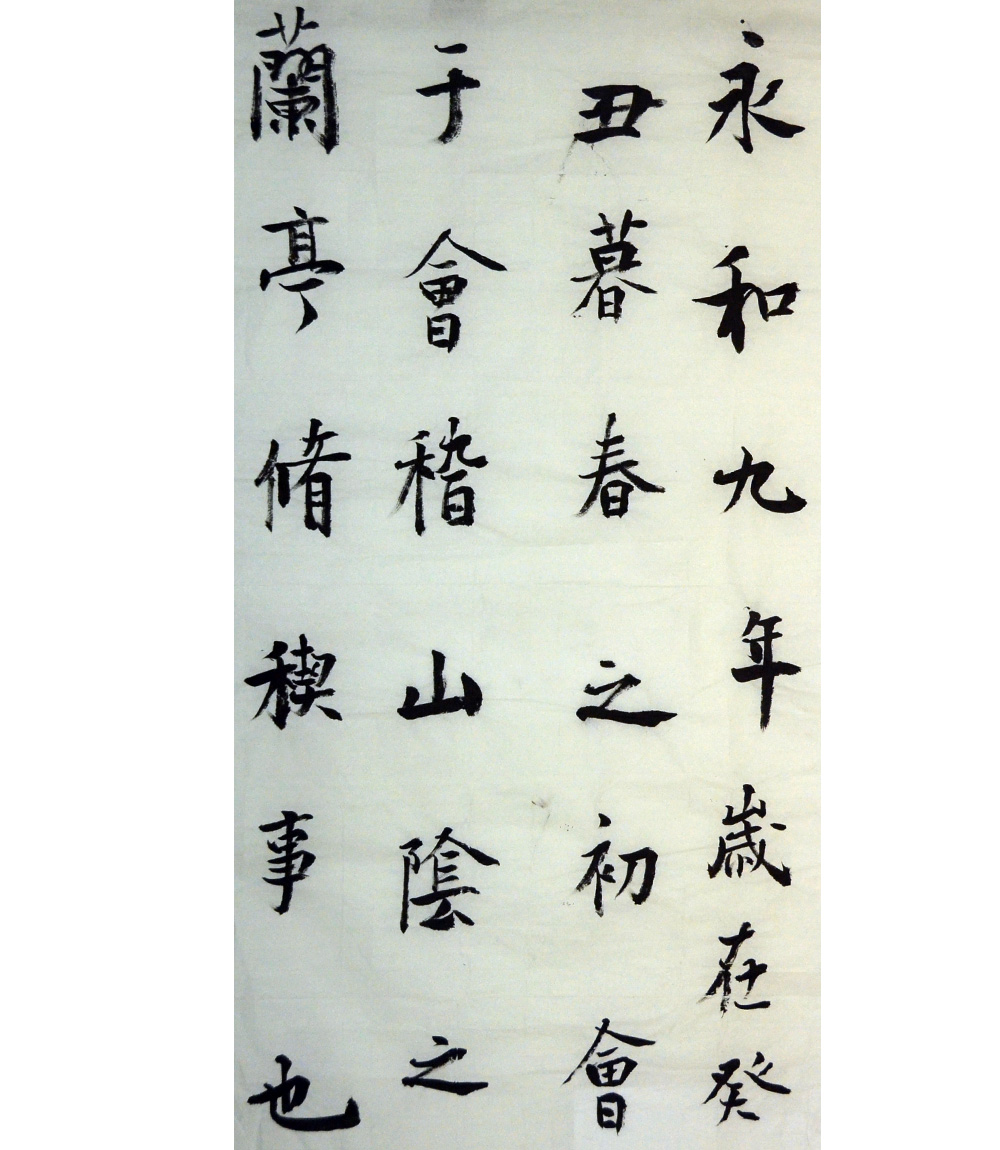 永和九年歲在癸
丑暮春之初會
于會稽山陰之
蘭亭脩稧事也